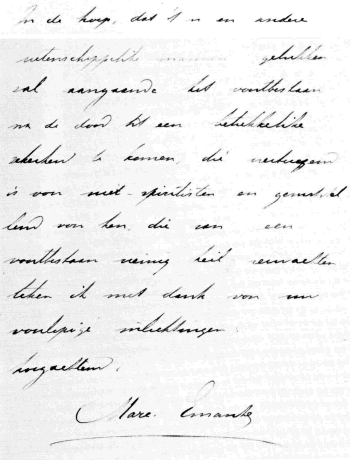 In de hoop, dat 't u en andere
wetenschappelike mannen gelukken
zal aangaande het voortbestaan
na de dood tot een betrekkelike
zekerheid te komen, die
is voor niet-spiritisten en
lend voor hen, die van een
voortbestaan weinig heil verwachten
teken ik met dank voor uw
voorlopige inlichtingen.
hoogachtend,
Marc. Emants